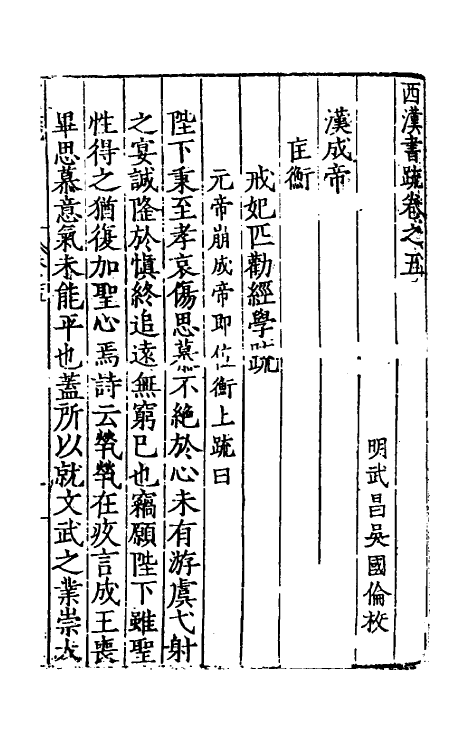 西漢書疏卷之五
明武昌吳國倫校
漢成帝
匡衡
戒妃匹勸經學疏
元帝崩成帝即位衡上疏曰
陛下秉至孝哀傷思慕不絕於心未有游虞弋射
之宴誠隆於慎終追遠無窮已也竊願陛下雖聖
性得之猶復加聖心焉詩云煢煢在疚言成王喪
畢思慕意氣未能平也蓋所以就文武之業崇大